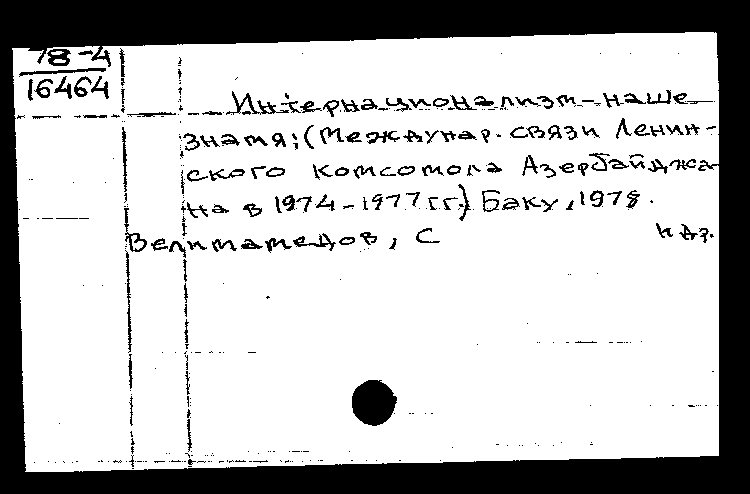 78-4
16464
Интернационализм-наше
знамя; (Междунар. связи Ленин-
ского комсомола Азербайджа-
на в 1974-1977 гг.) Баку, 1978.
Велимамедов, С